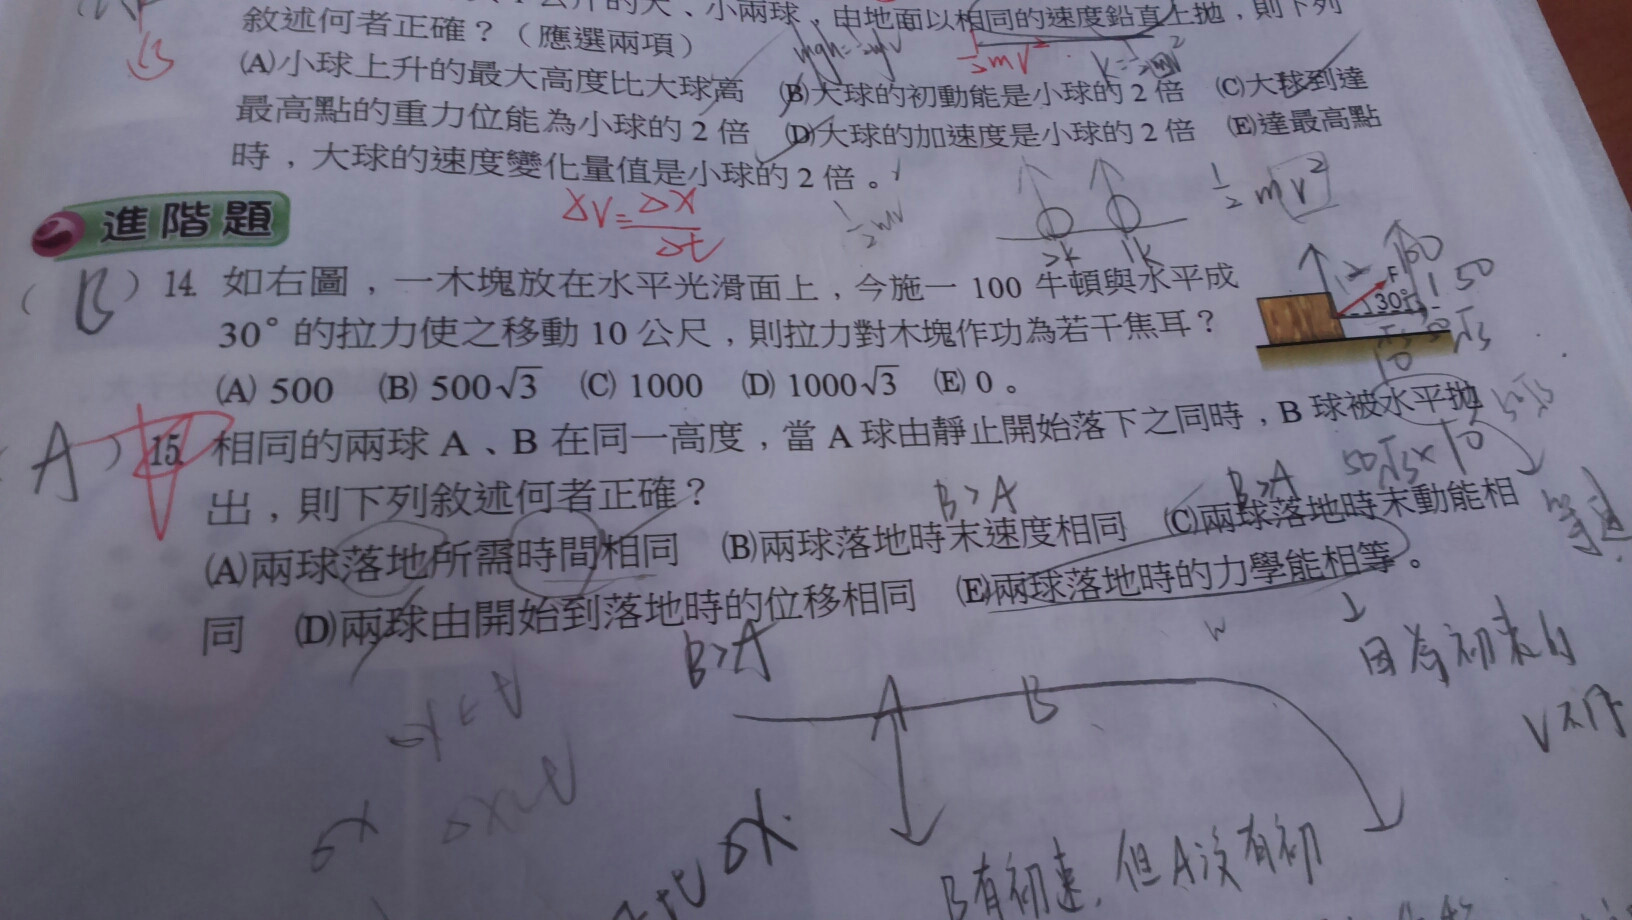 公斤的大、小兩球，由地面以相同的速度鉛直上拋，則下列
敘述何者正確？（應選兩項）
(A)小球上升的最大高度比大球高 (B)大球的初動能是小球的 2 倍 (C)大球到達
最高點的重力位能為小球的 2 倍 (D)大球的加速度是小球的 2 倍 (E)達最高點
時，大球的速度變化量值是小球的 2 倍。
B
½mv²
K=½mv²
½mv²
½mv
ΔV=Δx/Δt
2K
1K
進階題
( B ) 14. 如右圖，一木塊放在水平光滑面上，今施一 100 牛頓與水平成
30° 的拉力使之移動 10 公尺，則拉力對木塊作功為若干焦耳？
(A) 500 (B) 500√3 (C) 1000 (D) 1000√3 (E) 0。
F
30°
100
50
50√3
10
50√3
50√3×10
( A ) 15. 相同的兩球 A、B 在同一高度，當 A 球由靜止開始落下之同時，B 球被水平拋
出，則下列敘述何者正確？
B>A
B>A
(A)兩球落地所需時間相同 (B)兩球落地時末速度相同 (C)兩球落地時末動能相
同 (D)兩球由開始到落地時的位移相同 (E)兩球落地時的力學能相等。
等速
B>A
因為初速的
V不同
A
B
B有初速，但A沒有初